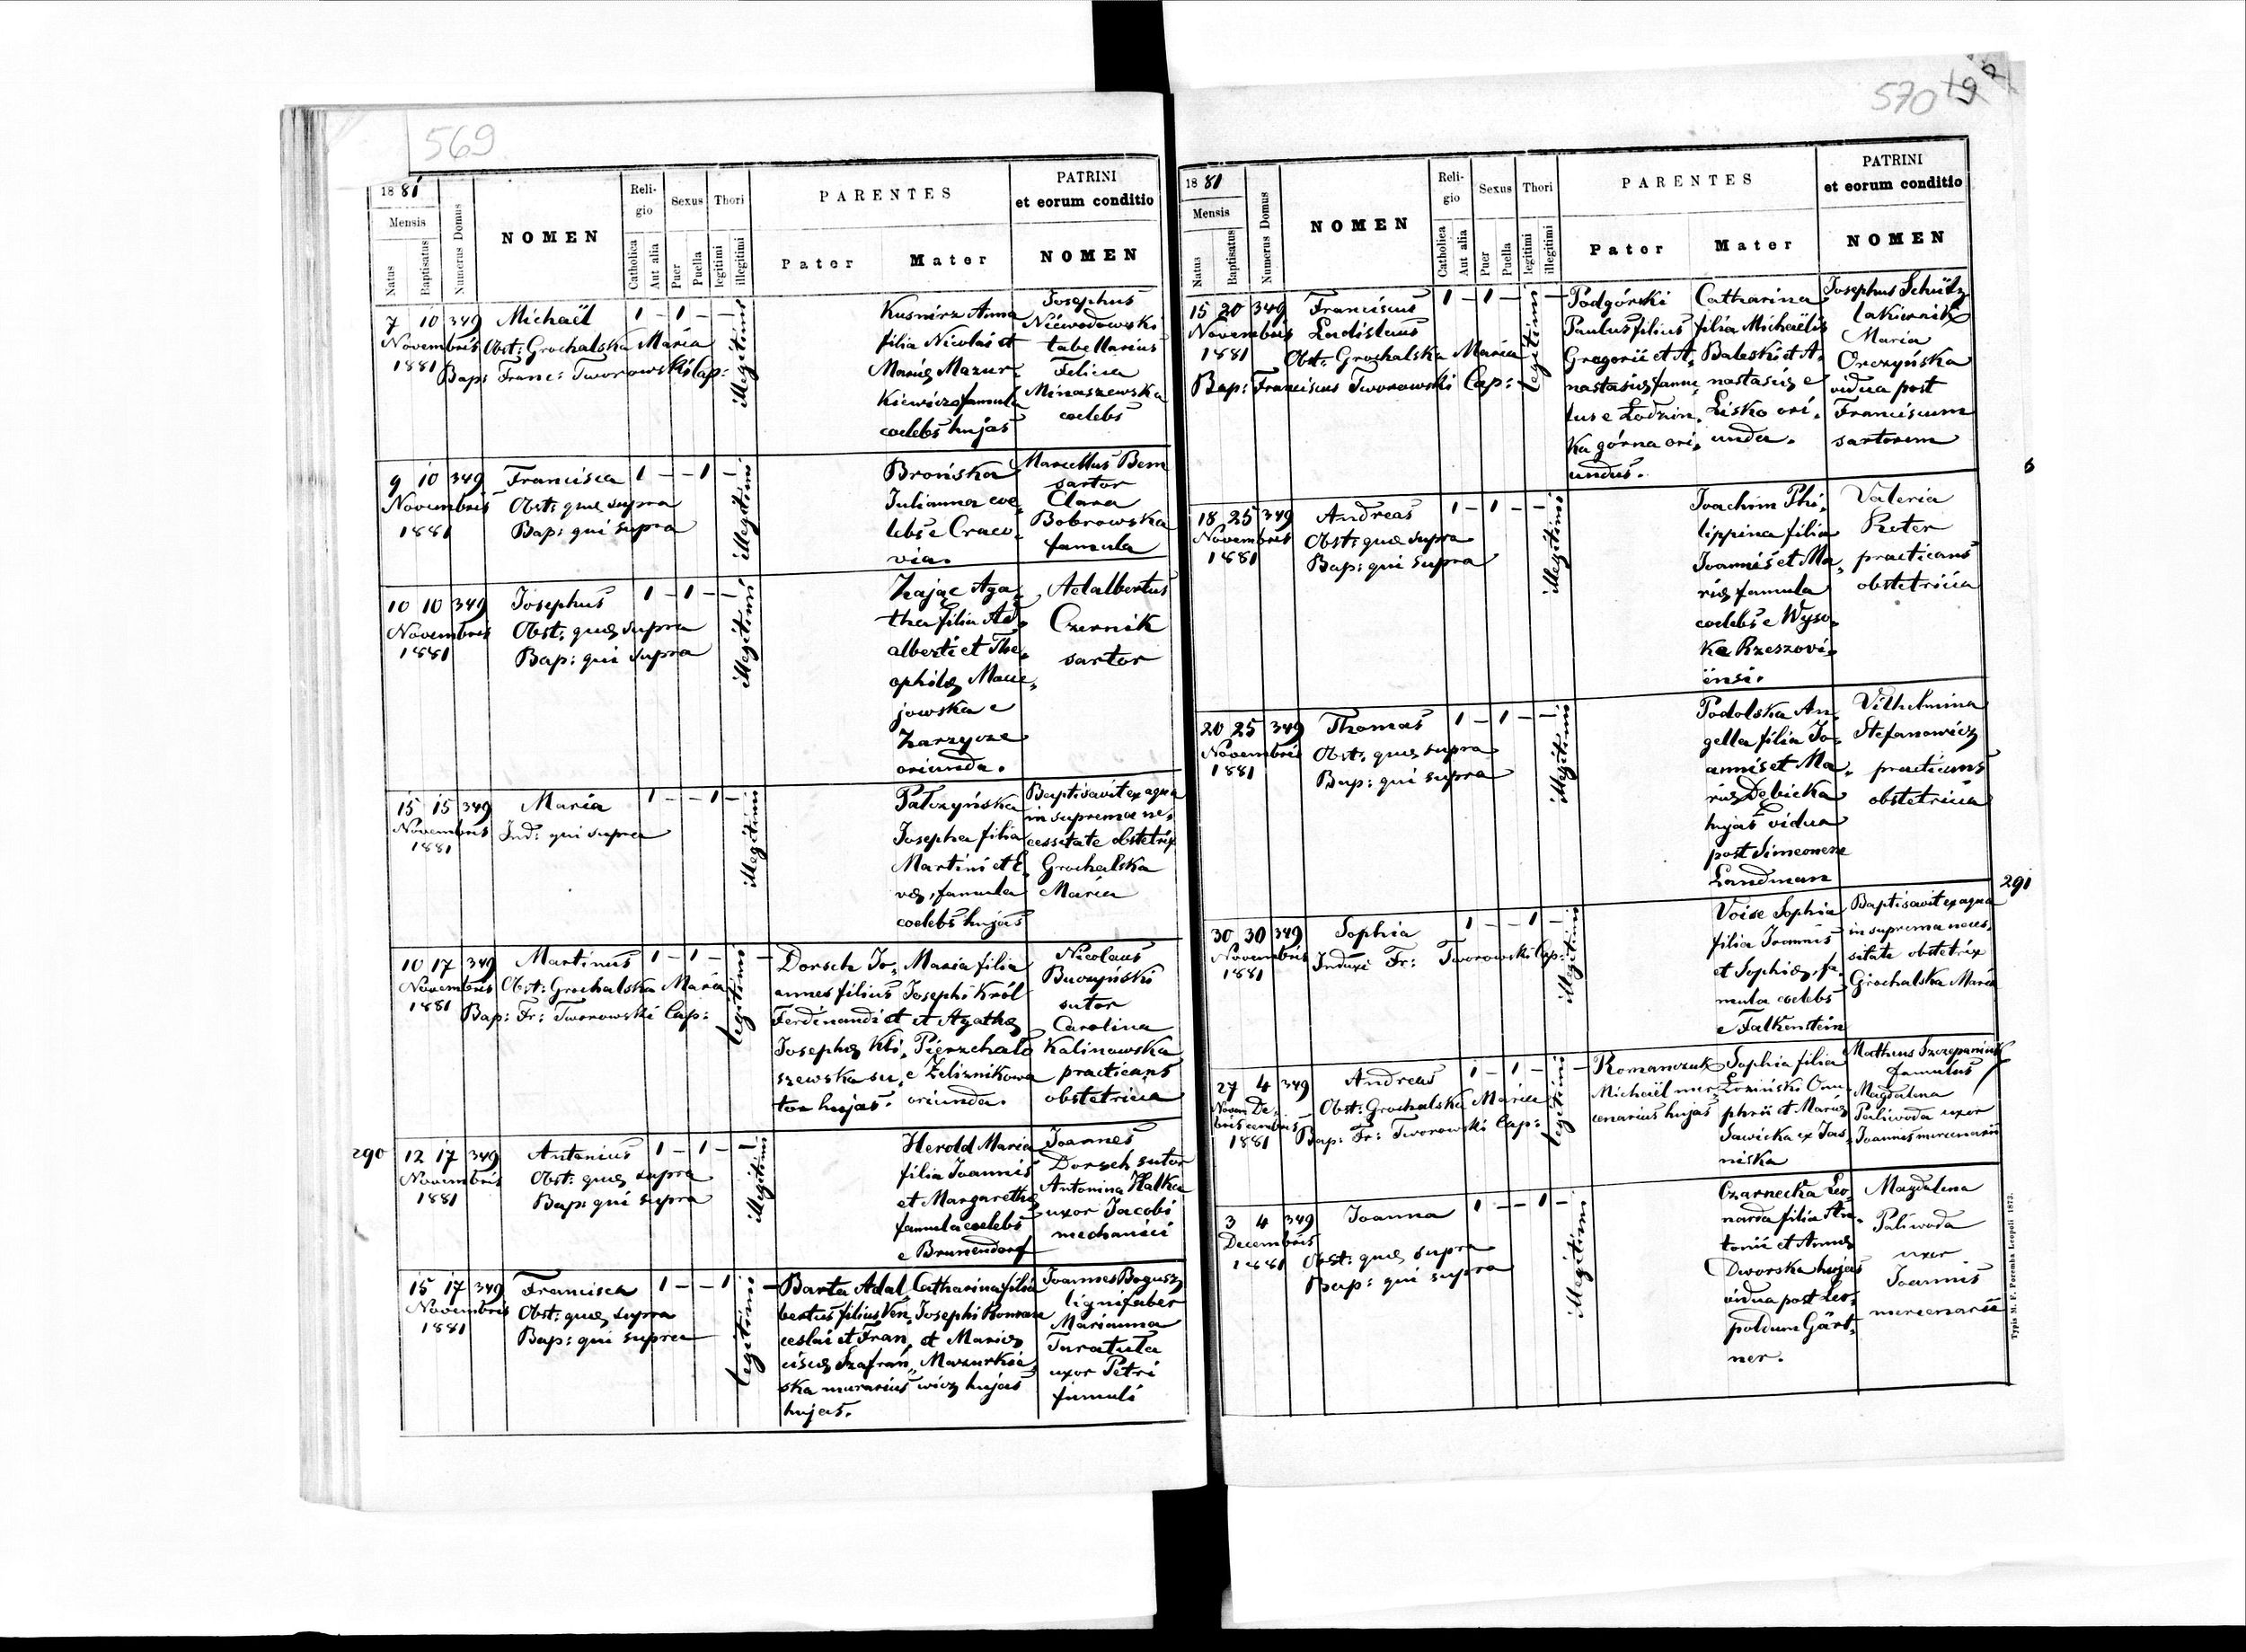 569
1881
Mensis
Natus
Baptisatus
Numerus Domus
NOMEN
Reli-
gio
Catholica
Aut alia
Sexus
Puer
Puella
Thori
legitimi
illegitimi
PARENTES
Pater
Mater
PATRINI
et eorum conditio
NOMEN
7 10 349 Michaël 1 – 1 – –
Novembris Obst: Grochalska Maria
1881 Bap: Franc: Tworowski Cap:
illegitimi
Kusnirz Anna
filia Nicolai et
Mariæ Mazur
kiewicz famula
coelebs hujas
Josephus
Niewodowski
tabellarius
Felicia
Minaszewska
coelebs
9 10 349 Francisca 1 – – 1 –
Novembris Obst: quæ supra
1881 Bap: qui supra
illegitimi
Brońska
Julianna coe
lebs e Craco
via.
Marcellus Bem
sartor
Clara
Bobrowska
famula
10 10 349 Josephus 1 – 1 – –
Novembris Obst: quæ supra
1881 Bap: qui supra
illegitimi
Zając Aga
tha filia Ad
alberti et The
ophilæ Macie
jowska e
Zarzycze
oriunda.
Adalbertus
Czernik
sartor
15 15 349 Maria 1 – – 1 –
Novembris Ind: qui supra
1881
illegitimi
Pałczyńska
Josepha filia
Martini et E
væ, famula
coelebs hujas
Baptisavit ex aqua
in suprema ne
cessitate obstetrix
Grochalska
Maria
10 17 349 Martinus 1 – 1 – –
Novembris Obst: Grochalska Maria
1881 Bap: Fr: Tworowski Cap:
legitimi
Dorsch Jo
annes filius
Ferdinandi et
Josephæ Kli
szewska su
tor hujas.
Maria filia
Josephi Król
et Agathæ
Pierzchała
e Żeliznikowa
oriunda.
Nicolaus
Buczyński
sutor
Carolina
Kalinowska
practicans
obstetricia
290
12 17 349 Antonius 1 – 1 – –
Novembris Obst: quæ supra
1881 Bap: qui supra
illegitimi
Herold Maria
filia Joannis
et Margarethæ
famula coelebs
e Brunendorf
Joannes
Dorsch sutor
Antonina Halka
uxor Jacobi
mechanici
15 17 349 Francisca 1 – – 1 –
Novembris Obst: quæ supra
1881 Bap: qui supra
legitimi
Barta Adal
bertus filius Ven
ceslai et Fran
ciscæ Szafrań
ska murarius
hujas.
Catharina filia
Josephi
et Mariæ
Mazurkie
wicz hujas
Joannes Bogusz
lignifaber
Marianna
Taratuta
uxor Petri
famuli
570
1881
Mensis
Natus
Baptisatus
Numerus Domus
NOMEN
Reli-
gio
Catholica
Aut alia
Sexus
Puer
Puella
Thori
legitimi
illegitimi
PARENTES
Pater
Mater
PATRINI
et eorum conditio
NOMEN
15 20 349 Franciscus 1 – 1 – –
Novembris Ladislaus
1881 Obst: Grochalska Maria
Bap: Franciscus Tworowski Cap:
legitimi
Podgórski
Paulus filius
Gregorii et A
nastasiæ famu
lus e Łodzin
ka górna ori
undus.
Catharina
filia Michaëlis
Baleski et A
nastasiæ e
Lisko ori
unda.
Josephus Schütz
lakiernik
Maria
Orczyńska
vidua post
Franciscum
sartorem
18 25 349 Andreas 1 – 1 – –
Novembris Obst: quæ supra
1881 Bap: qui supra
illegitimi
Joachim Phi
lippina filia
Joannis et Ma
riæ famula
coelebs e Wyso
ka Rzeszovi
ensi.
Valeria
Reter
practicans
obstetricia
20 25 349 Thomas 1 – 1 – –
Novembris Obst: quæ supra
1881 Bap: qui supra
illegitimi
Podolska An
gella filia Jo
annis et Ma
riæ Dębicka
hujas vidua
post Simeonem
Landman
Vilhelmina
Stefanowicz
practicans
obstetricia
291
30 30 349 Sophia 1 – – 1 –
Novembris Induxi Fr: Tworowski Cap:
1881
illegitimi
Voise Sophia
filia Joannis
et Sophiæ, fa
mula coelebs
e Falkenstein
Baptisavit ex aqua
in suprema neces
sitate obstetrix
Grochalska Maria
27 4 349 Andreas 1 – 1 – –
Novem De
bris cembris Obst: Grochalska Maria
1881 Bap: Fr: Tworowski Cap:
legitimi
Romanczuk
Michaël mer
cenarius hujas
Sophia filia
Łoziński Onu
phrii et Mariæ
Sawicka ex Jas
niska
Matheus Szczepaniuk
famulus
Magdalena
Paliwoda uxor
Joannis mercenarii
3 4 349 Joanna 1 – – 1 –
Decembris
1881 Obst: quæ supra
Bap: qui supra
illegitimi
Czarnecka Leo
narda filia An
tonii et Annæ
Dworska hujas
vidua post Leo
poldum Gärt
ner.
Magdalena
Paliwoda
uxor
Joannis
mercenarii
Typis M. F. Poremba Leopoli 1873.